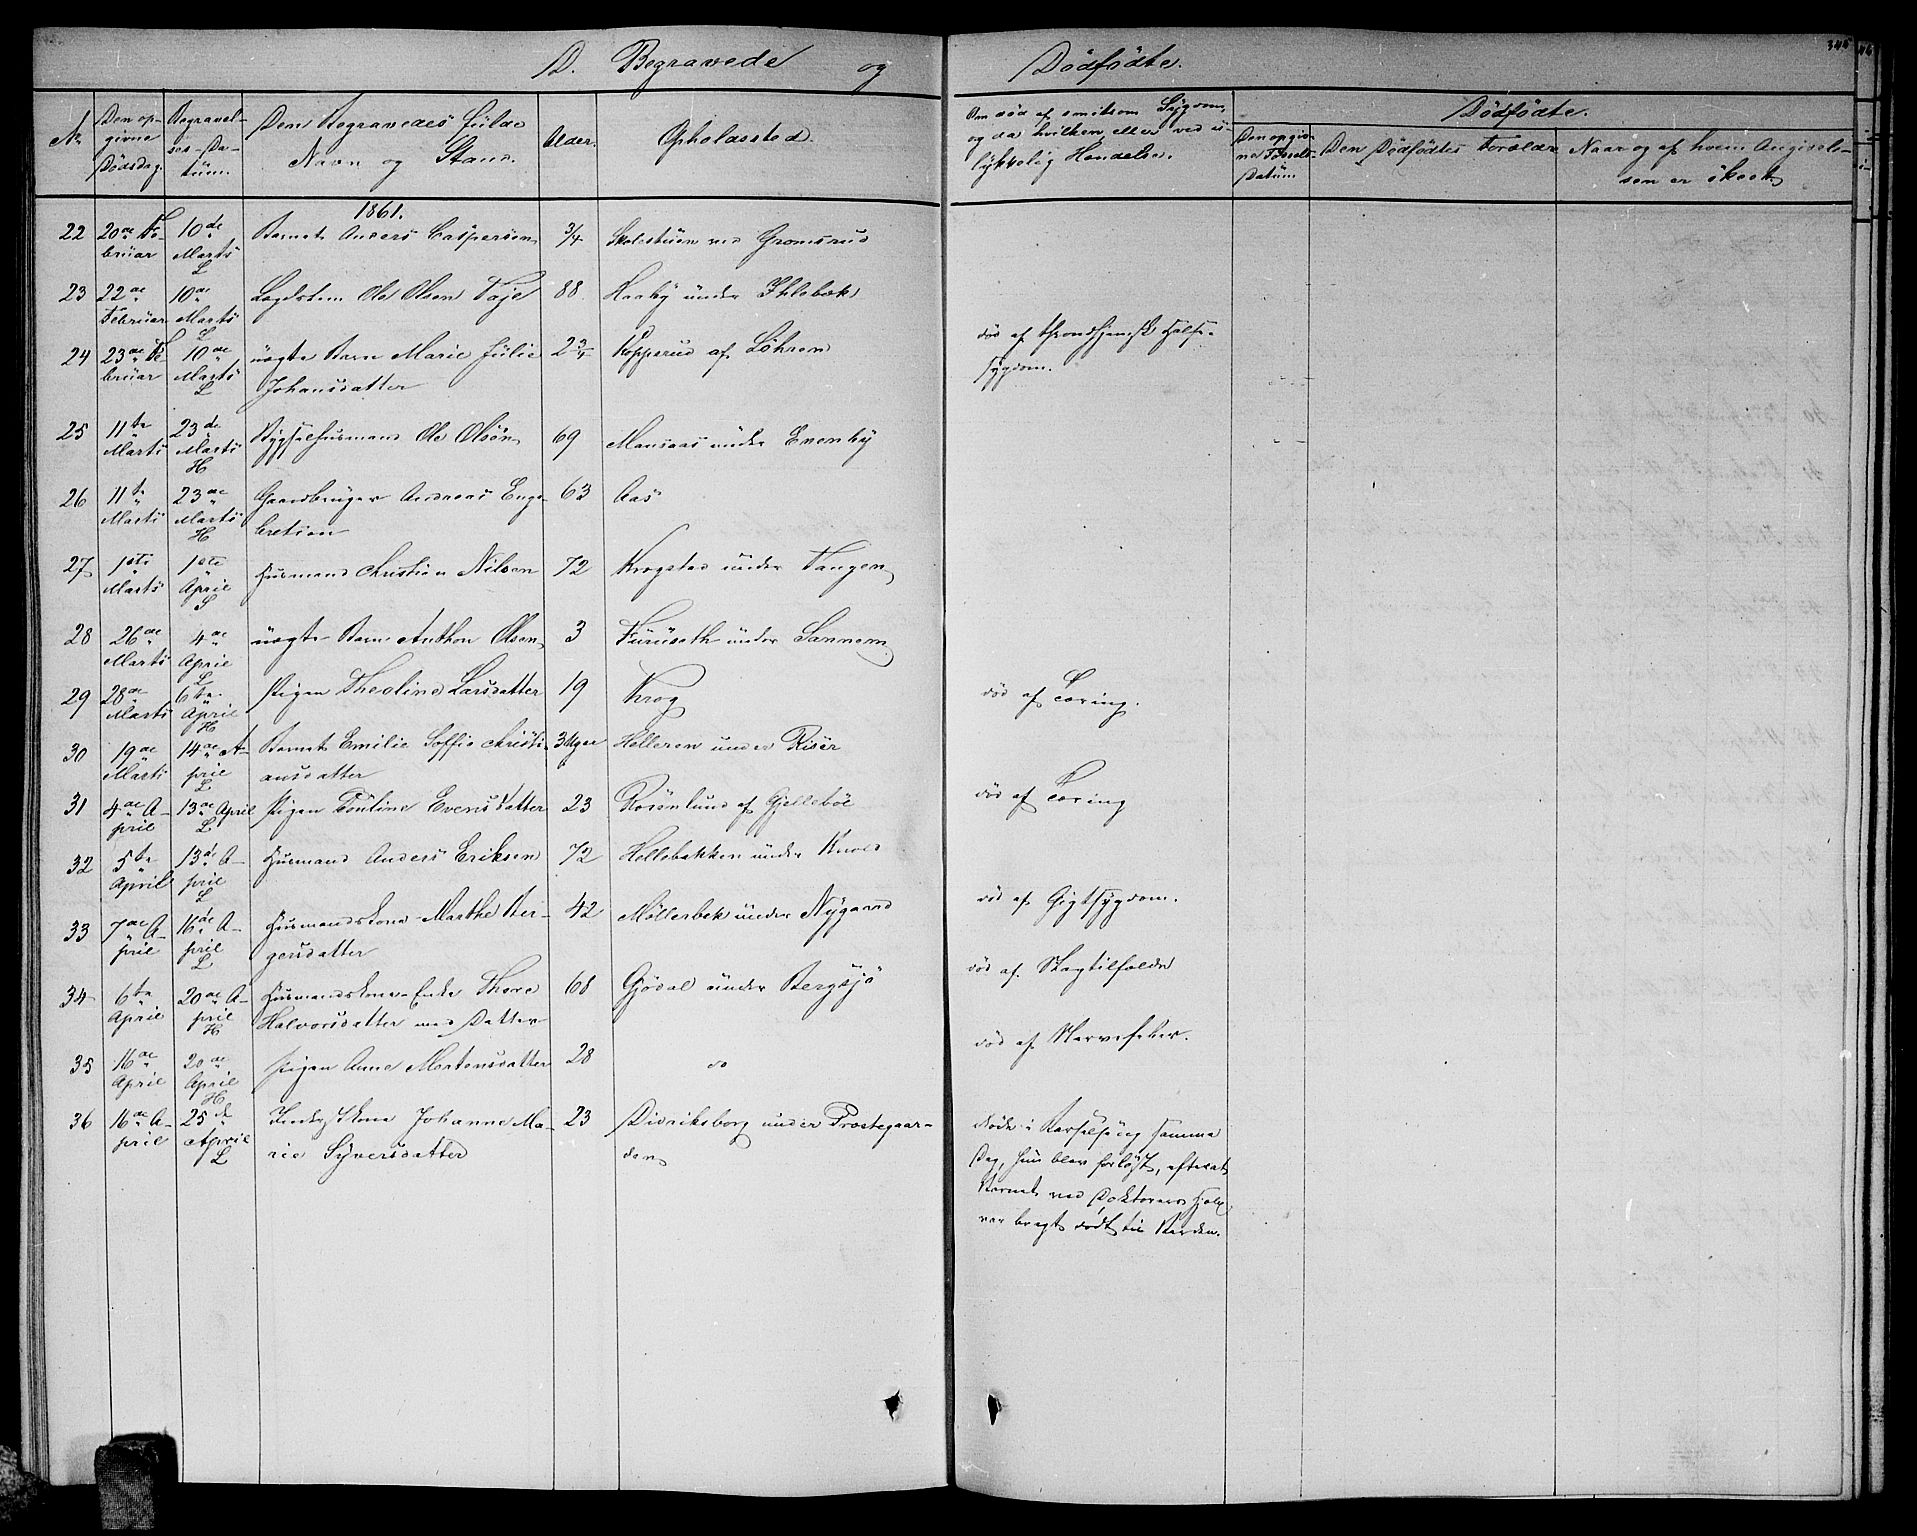 D. Begravede og Dödfödte.
345
No
Den opgivne Dödsdag.
Begravelses-Datum.
Den Begravedes fulde Navn og Stand.
Alder.
Opholdssted.
Om död af smitsom Sygdom, og da hvilken, eller ved ulykkelig Hændelse.
Dödfödte.
Den opgivne Födsels Datum
Den Dödfödtes Forældre
Naar og af hvem Angivelsen er skeet.
1861.
22 20de Februar 10de Marts L Barnet Anders Caspersen 3/4 Skolestuen ved Gromsrud
23 22de Februar 10de Marts L Lægdslem Ole Olsen Vaje 88 Haaby under Ihlebæk
24 23de Februar 10de Marts L uægte Barn Marie Julie Johansdatter 2 3/4 Kopperud af Löhren död af throndhjemsk Halssygdom.
25 11te Marts 23de Marts H Bygselhusmand Ole Olsön 69 Monsaas under Evenby
26 11te Marts 23de Marts H Gaardbruger Andreas Engebretsen 63 Aas
27 1ste Marts 1ste April S Husmand Christian Nilsen 72 Krogstad under Tangen
28 26de Marts 4de April L uægte Barn Anthon Olsen 3 Furuseth under Sannem
29 28de Marts 6te April H Pigen Theoline Larsdatter 19 Krog död af Tæring.
30 19de Marts 14de April L Barnet Emilie Soffie Christiansdatter 3 Uger Helleren under Risör
31 4de April 13de April L Pigen Pouline Evensdatter 23 Rosenlund af Gjelleböl död af Tæring
32 5te April 13de April L Husmand Anders Eriksen 72 Hellebakken under Knold
33 7de April 16de April L Husmandskone Marthe Børgersdatter 42 Möllerbek under Nygaard död af Gigtsygdom.
34 6te April 20de April H Husmandskone-Enke Thore Halvorsdatter med Datter 68 Gjödal under Bergsjö död af Slagtilfælde
35 16de April 20de April H Pigen Anne Mortensdatter 28 do död af Nervefeber.
36 16de April 25de April L Inderstkone Johanne Marie Syversdatter 23 Didriksborg under Præstegaarden döde i Barselseng samme Dag, hun blev forlöst, efterat Barnet ved Doktorens Hjelp var bragt dödt til Verden.